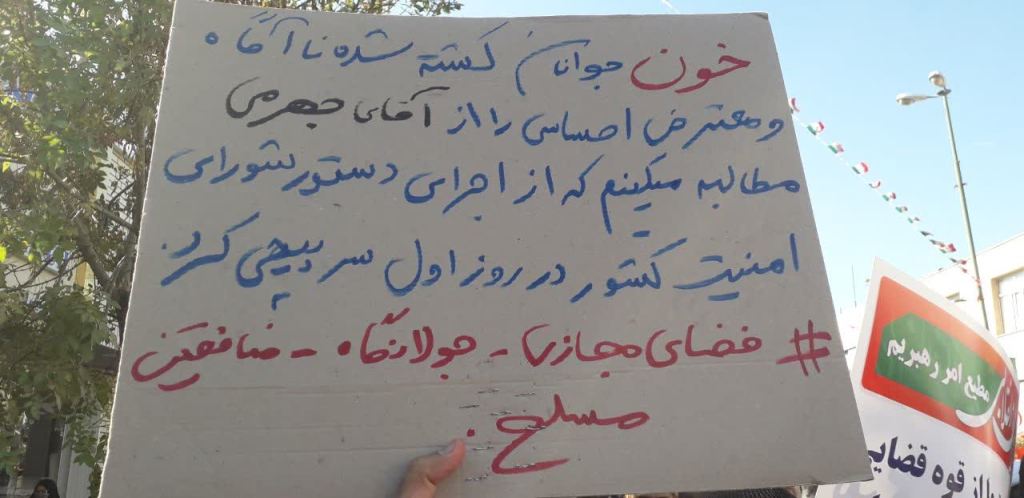 خون جوانان کشته شده ناآگاه
و معترض احساسی را از آقای جهرمی
مطالبه میکنیم که از اجرای دستور شورای
امنیت کشور در روز اول سرپیچی کرد.
# فضای مجازی - جولانگاه - منافقین
مسلح.
مطیع امر رهبریم
از قوه قضایی